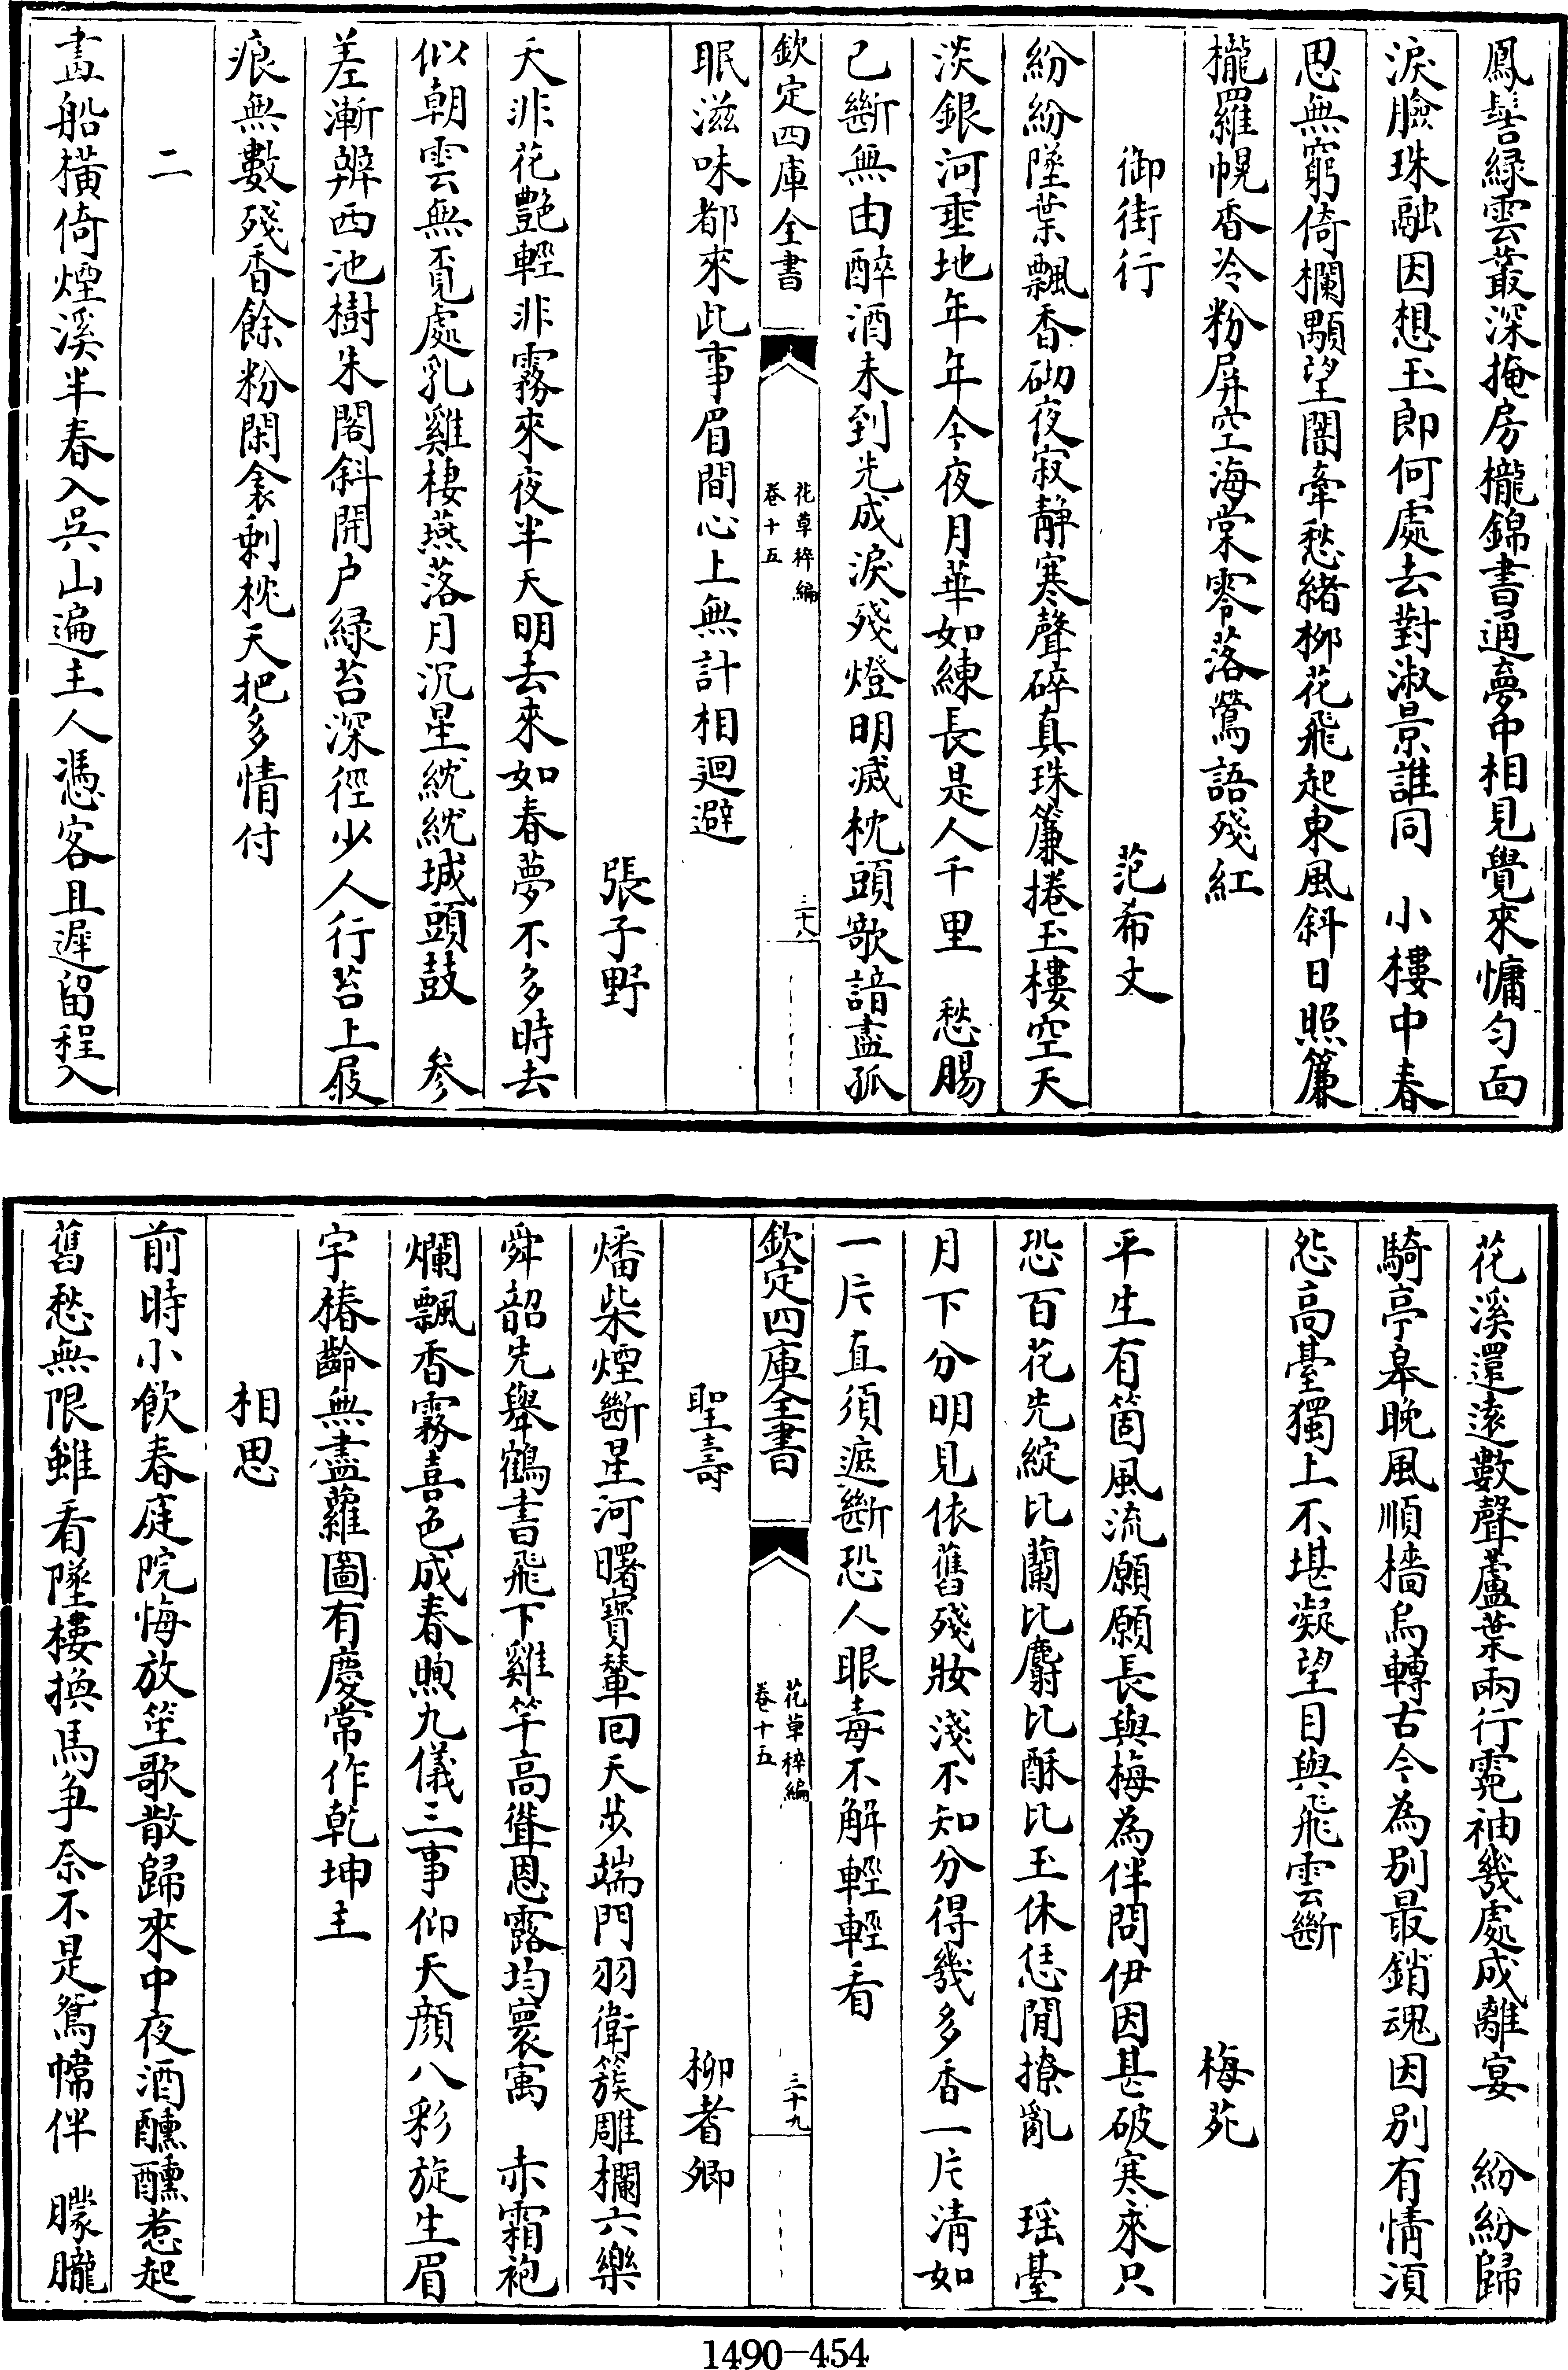 鳳髻緑雲叢深掩房櫳錦書通夢中相見覺來慵勻面
淚臉珠融因想玉郎何處去對淑景誰同　小樓中春
思無窮倚欄顒望闇牽愁緒柳花飛起東風斜日照簾
櫳羅幌香冷粉屏空海棠零落鶯語殘紅
御街行　范希文
紛紛墜葉飄香砌夜寂靜寒聲碎真珠簾捲玉樓空天
淡銀河垂地年年今夜月華如練長是人千里　愁腸
已斷無由醉酒未到先成淚殘燈明滅枕頭欹諳盡孤
欽定四庫全書
花草稡編
卷十五
三十八
眠滋味都來此事眉間心上無計相迴避
張子野
夭非花艷輕非霧來夜半天明去來如春夢不多時去
似朝雲無覓處乳雞棲燕落月沉星紞紞城頭鼓　參
差漸辨西池樹朱閣斜開户緑苔深徑少人行苔上屐
痕無數殘香餘粉閑衾剩枕天把多情付
二
畫船橫倚煙溪半春入吳山遍主人憑客且遲留程入
花溪還遠數聲蘆葉兩行霓袖幾處成離宴　紛紛歸
騎亭皋晚風順檣烏轉古今為别最銷魂因别有情湏
怨高臺獨上不堪凝望目與飛雲斷
梅苑
平生有箇風流願願長與梅為伴問伊因甚破寒來只
恐百花先綻比蘭比麝比酥比玉休恁閒撩亂　瑶臺
月下分明見依舊殘妝淺不知分得幾多香一片清如
一片直須遮斷恐人眼毒不解輕輕看
欽定四庫全書
花草稡編
卷十五
三十九
聖壽　柳耆卿
燔柴煙斷星河曙寶輦囘天歩端門羽衛簇雕欄六樂
舜韶先舉鶴書飛下雞竿高聳恩露均寰寓　赤霜袍
爛飄香霧喜色成春煦九儀三事仰天顔八彩旋生眉
宇椿齡無盡蘿圖有慶常作乾坤主
相思
前時小飲春庭院悔放笙歌散歸來中夜酒醺醺惹起
舊愁無限雖看墜樓換馬爭奈不是鴛幃伴　朦朧
1490-454